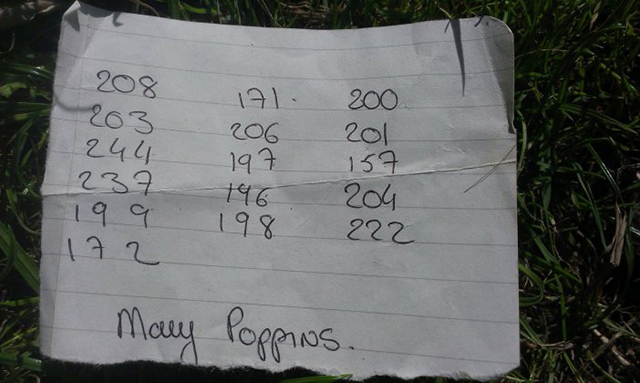 208 171. 200
203 206 201
244 197 157
237 196 204
199 198 222
172
Mary Poppins.